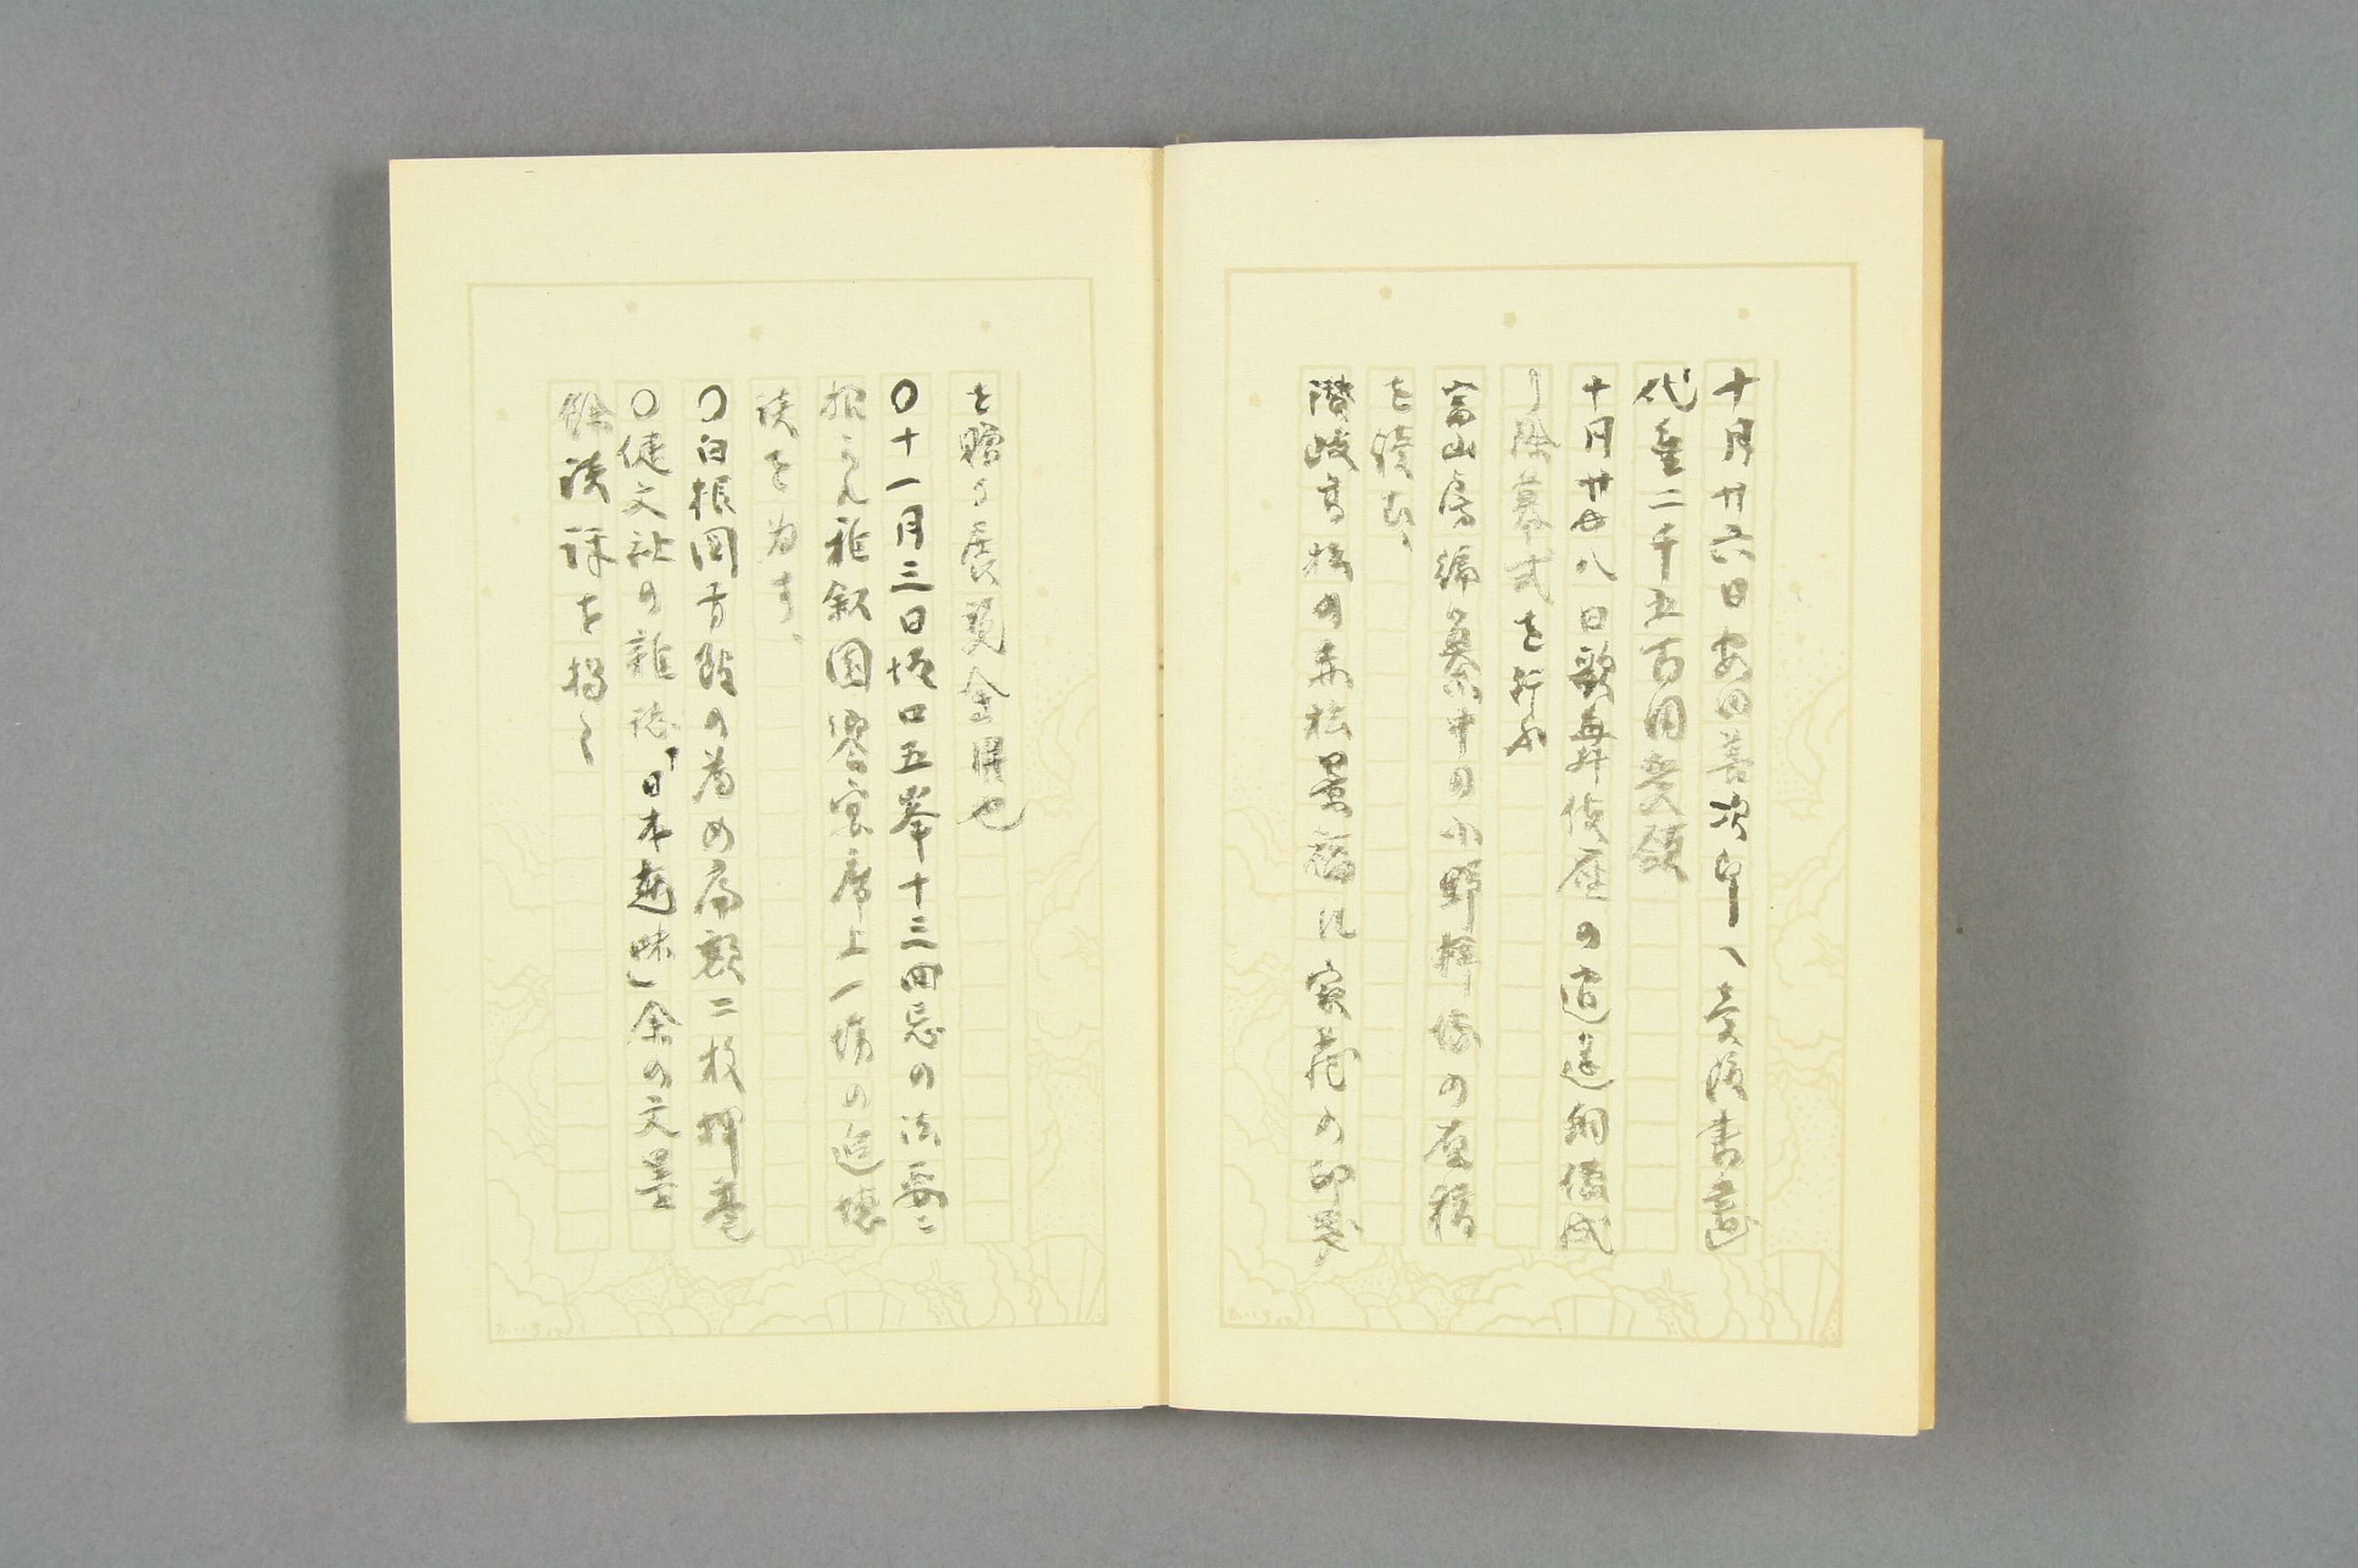 十月廿六日安田善次郎へ売渡書画
代金二千五百円受領
十月廿廿八日歌舞伎座の逍遥銅像成
り除幕式を行ふ
冨山房編纂中の小野梓伝の原稿
を読む、
讃岐高松の赤松景福氏家蔵の印影
を贈り展覧会開也
〇十一月三日坂口五峯十三回忌の法要ニ
招かれ祖叙園宴席上一場の追懐
談を為す、
〇白根国方館の為め扁額二枚揮毫
〇健文社の雑誌「日本趣味」余の文墨
余談詳を掲く